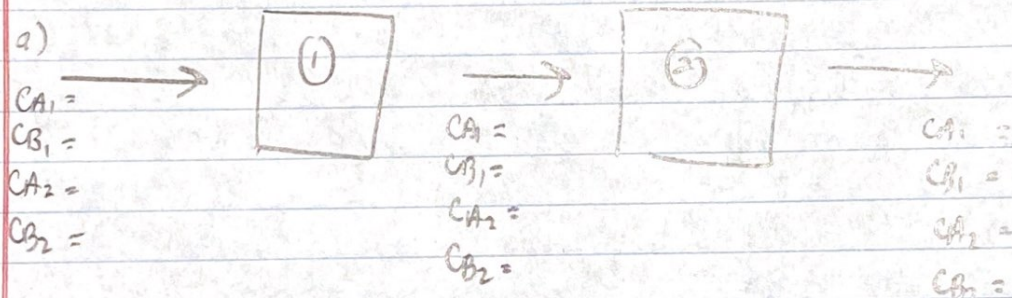 a)
① ②
CA₁ =
CB₁ =
CA₂ =
CB₂ =
CA₁ =
CB₁ =
CA₂ =
CB₂ =
CA₁ =
CB₁ =
CA₂ =
CB₂ =